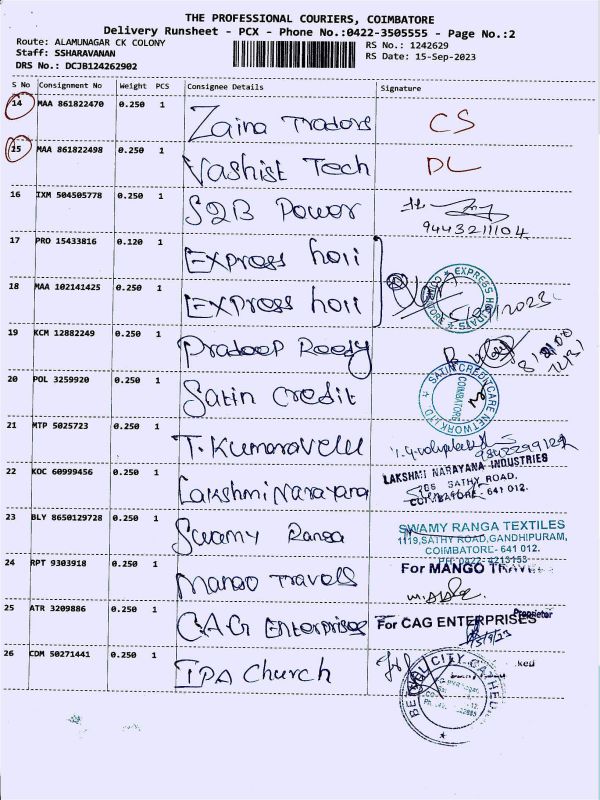 THE PROFESSIONAL COURIERS, COIMBATORE
Delivery Runsheet - PCX - Phone No.:0422-3505555 - Page No.:2
Route: ALAMUNAGAR CK COLONY
Staff: SSHARAVANAN
DRS No.: DCJB124262902
RS No.: 1242629
RS Date: 15-Sep-2023
S No Consignment No Weight PCS Consignee Details Signature
14 MAA 861822470 0.250 1 Zaina Tradors CS
15 MAA 861822498 0.250 1 Vashist Tech DL
16 IXM 504505778 0.250 1 S2B Power
9443211104
17 PRO 15433816 0.120 1 Express hoii
18 MAA 102141425 0.250 1 Express hoii
19 KCM 12882249 0.250 1 Pradeep Reedy
20 POL 3259920 0.250 1 Satin Credit
SATIN CREDITCARE NETWORK LTD
COIMBATORE
21 MTP 5025723 0.250 1 T. Kumaravelu
22 KOC 60999456 0.250 1 Lakshmi Narayana
LAKSHMI NARAYANA INDUSTRIES
SATHY ROAD,
COIMBATORE - 641 012.
23 BLY 8650129728 0.250 1 Swamy Ranga
SWAMY RANGA TEXTILES
1119, SATHY ROAD, GANDHIPURAM,
COIMBATORE- 641 012.
PH:0422-4213153
24 RPT 9303918 0.250 1 Mango Travels
For MANGO TRAVELS
25 ATR 3209886 0.250 1 CAG Enterprises
For CAG ENTERPRISES
Proprietor
26 CDM 50271441 0.250 1 IPA Church